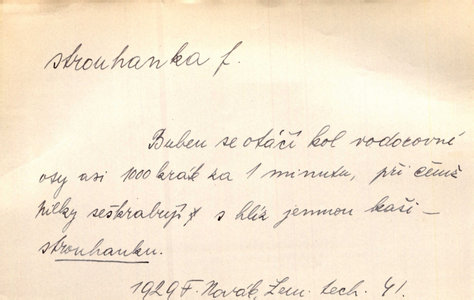 strouhanka f.
Buben se otáčí kol vodorovné
osy asi 1000 krát za 1 minutu, při čemž
pilky seškrabují s hlíz jemnou kaši –
strouhanku.
1929 F. Novák, Zem. tech. 41.